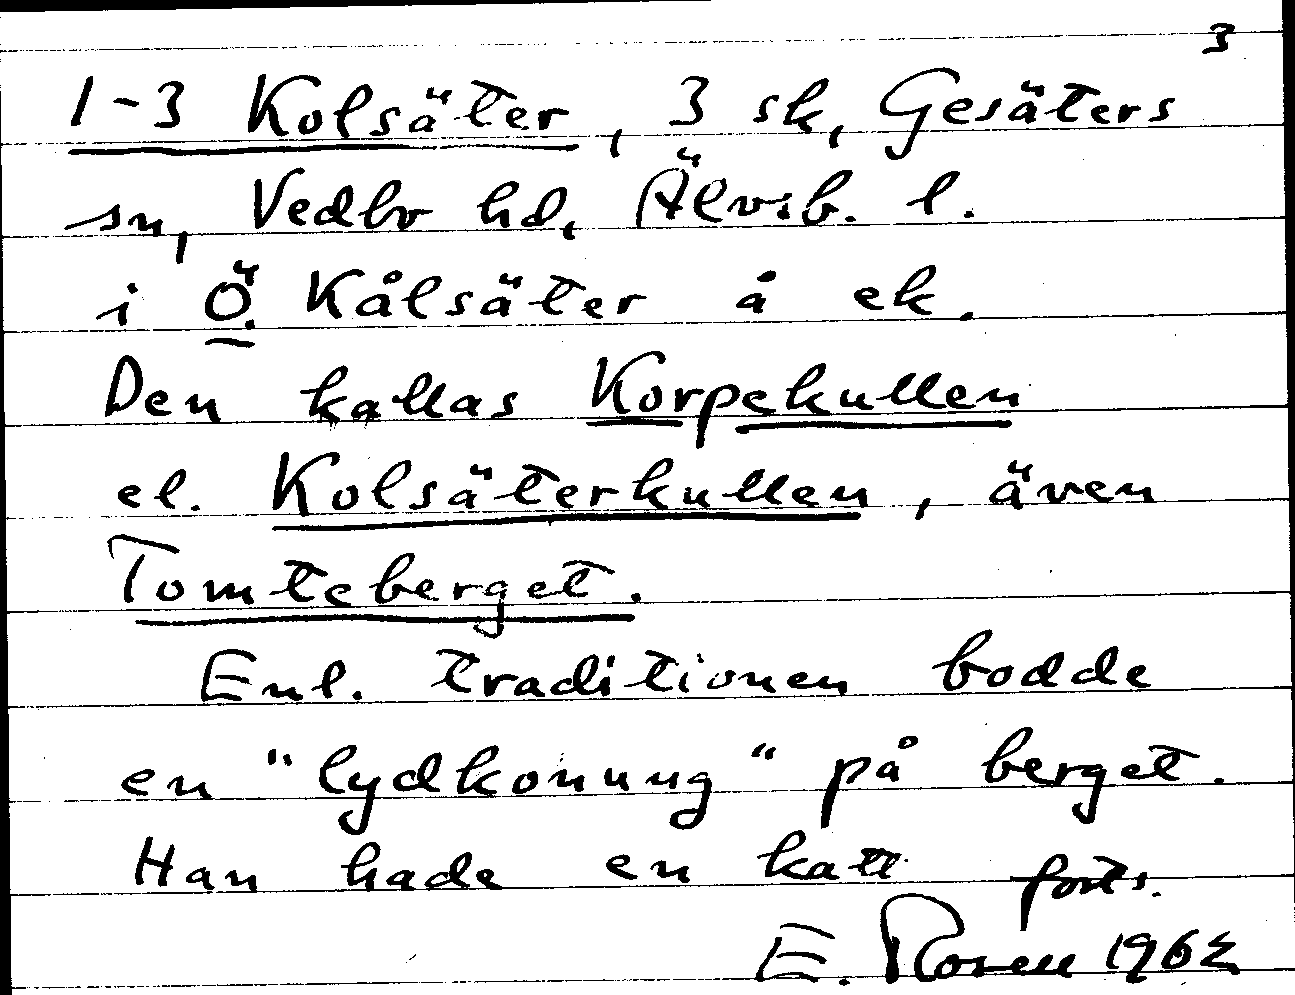 3
1-3 Kolsäter, 3 sk, Gesäters
sn, Vedbo hd, Älvsb. l.
i Ö. Kålsäter å ek.
Den kallas Korpekullen
el. Kolsäterkullen, även
Tomteberget.
Enl. traditionen bodde
en "lydkonung" på berget.
Han hade en katt forts.
E. Rosen 1962